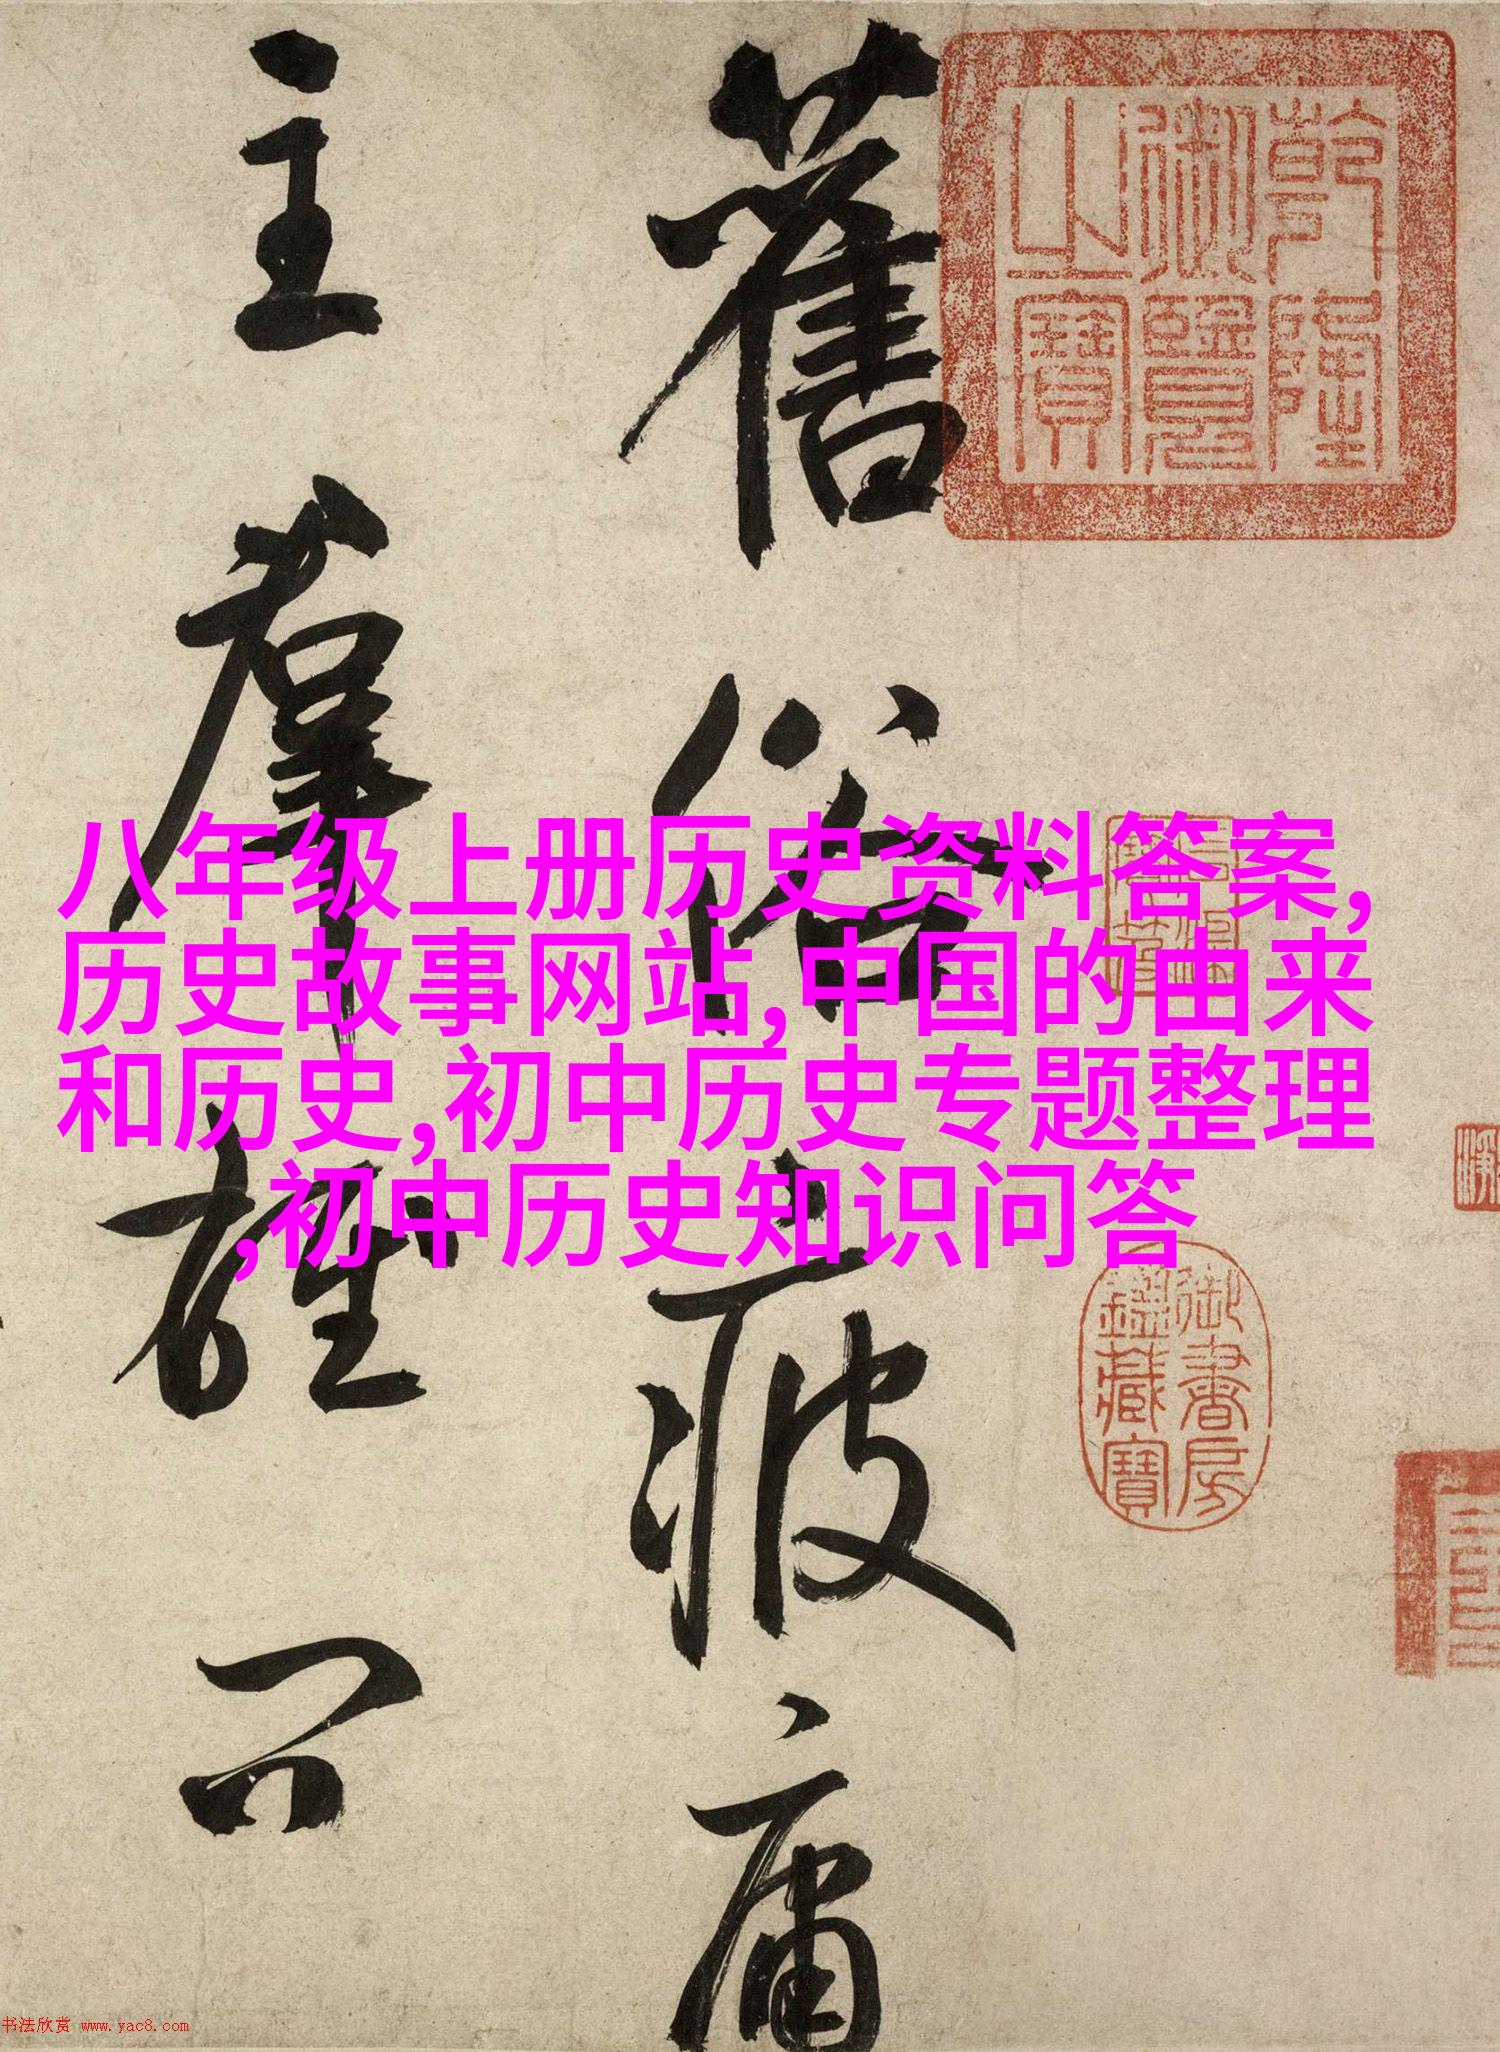 舊俗疲庸
主羣雄不
乾隆御覽之寶
八年级上册历史资料答案,
历史故事网站,中国的由来
和历史,初中历史专题整理
,初中历史知识问答
御書房鑑藏寶
书法欣赏 www.yac8.com